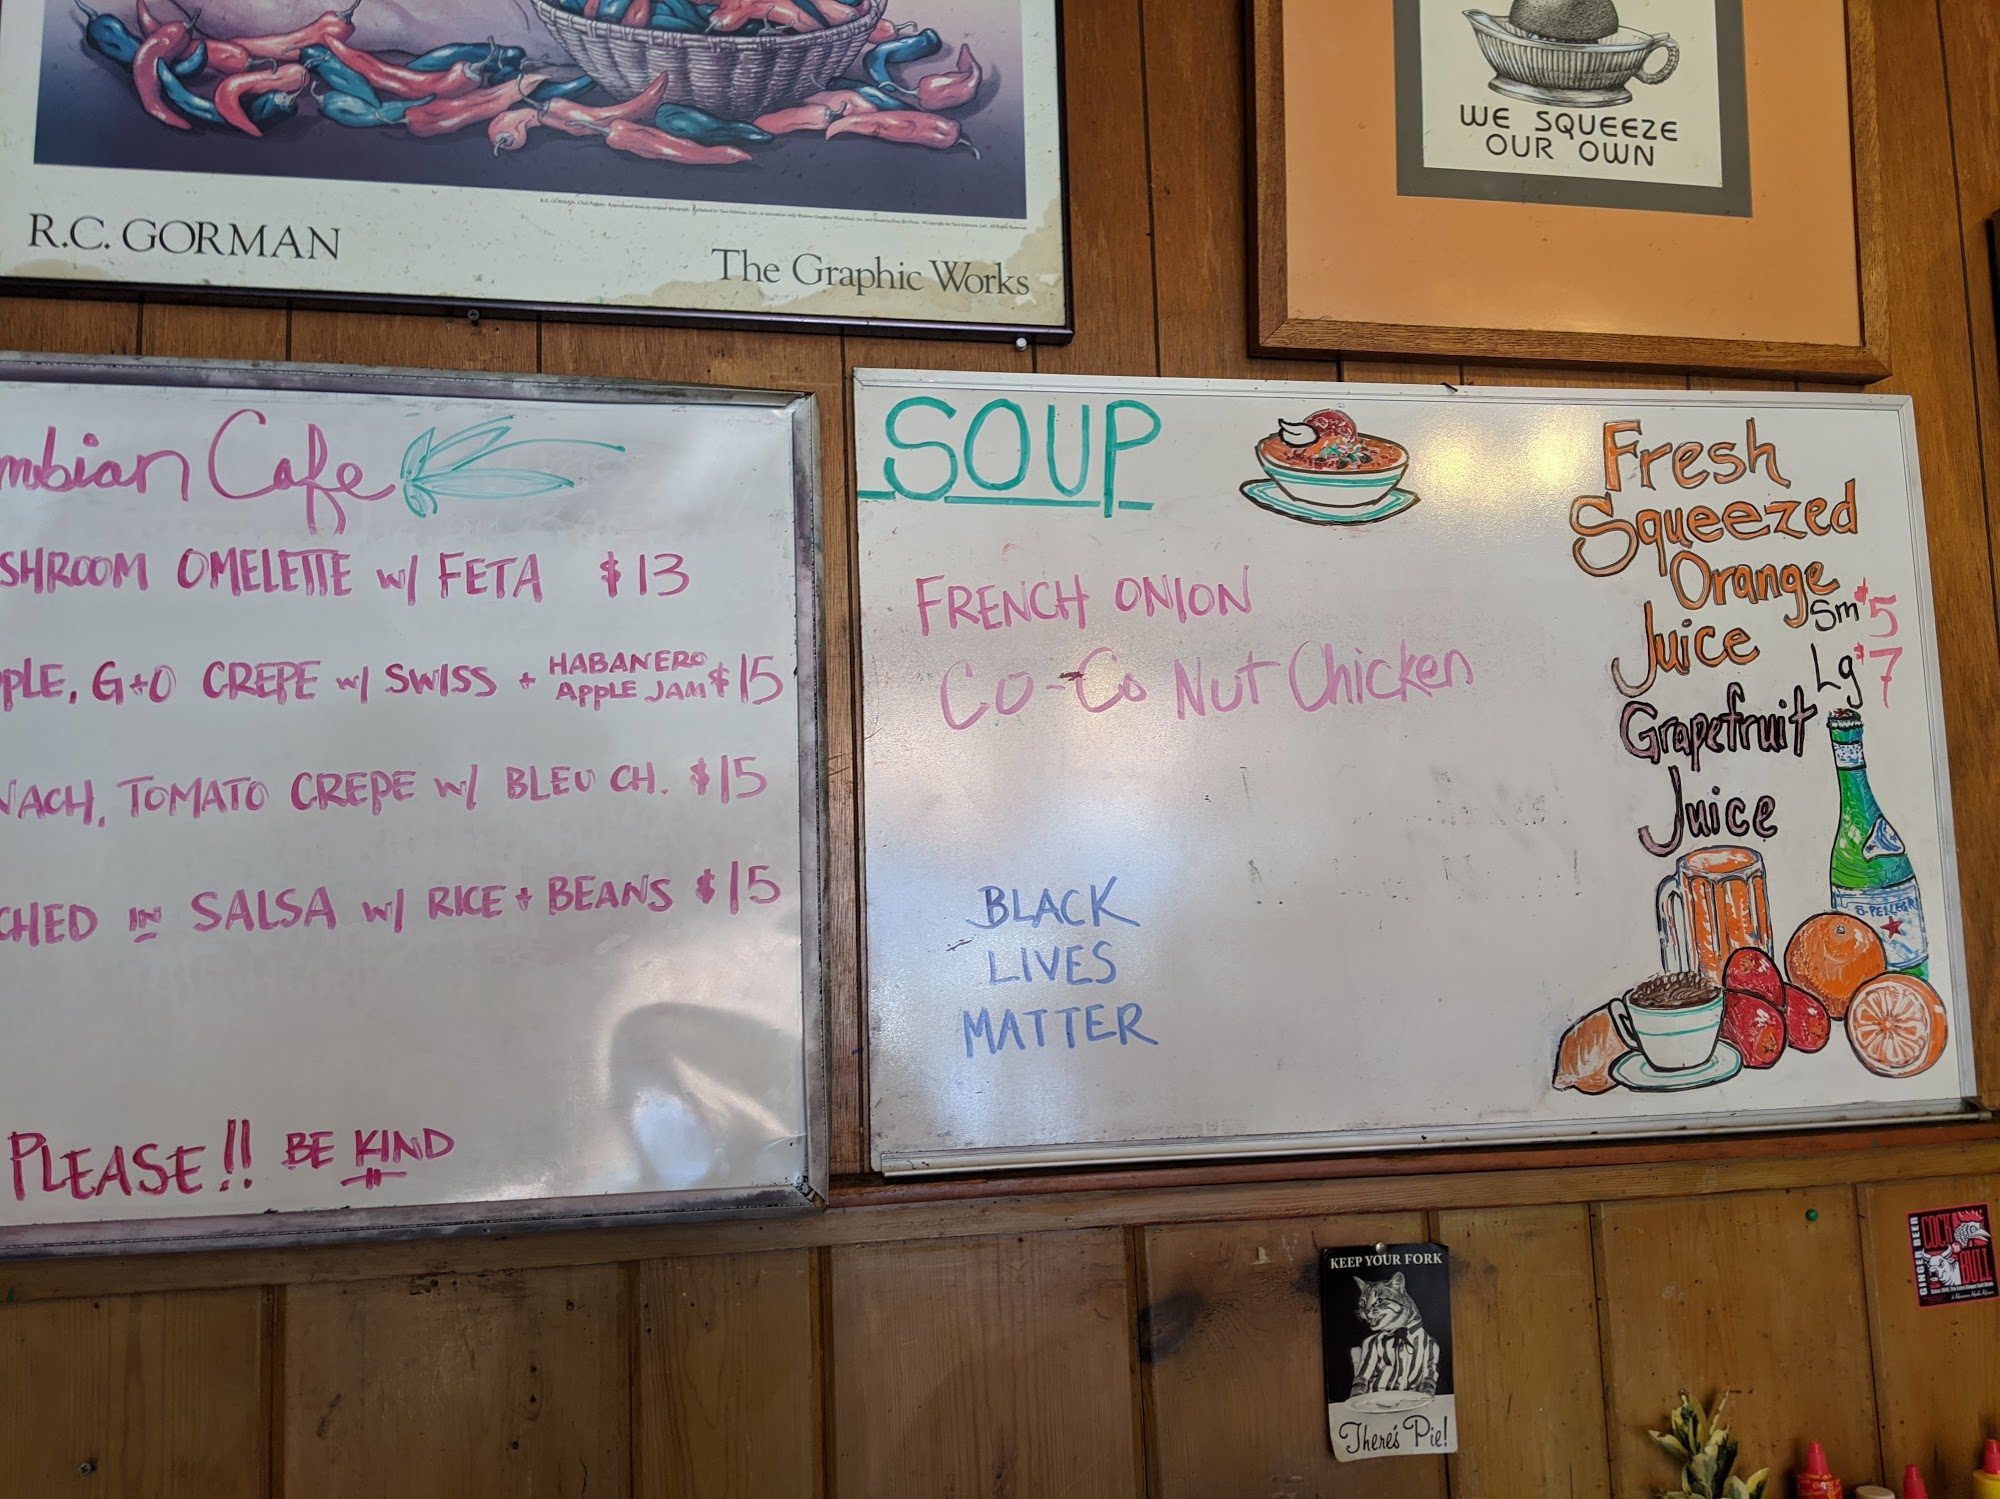 R.C. GORMAN
The Graphic Works
WE SQUEEZE
OUR OWN
mbian Cafe
SHROOM OMELETTE w/ FETA $13
PLE, G+O CREPE w/ SWISS + HABANERO APPLE JAM $15
NACH, TOMATO CREPE w/ BLEU CH. $15
CHED IN SALSA w/ RICE + BEANS $15
PLEASE!! BE KIND
SOUP
FRENCH ONION
CO-CO NUT Chicken
BLACK
LIVES
MATTER
Fresh
Squeezed
Orange
Juice
Sm $5
Lg $7
Grapefruit
Juice
S.PELLEGRI
KEEP YOUR FORK
There's Pie!
GINGER BEER
COCK
BULL